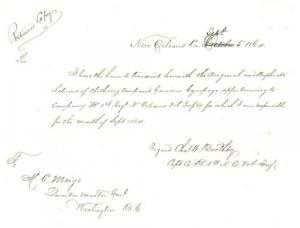 Retained Copy
New Orleans La. Sept 5 1864
Sir
I have the honor to transmit herewith the Original and
Returns of Clothing Camp and Garrison Equipage appertaining to
Company 1st Regt N. Orleans Vol Inf for which I am responsible
for the month of Sept 1864.
Signed Chas W. Boothby
Capt 1st N. O. Vols Inf.
To
M. C. Meigs
Quarter Master Genl
Washington D.C.